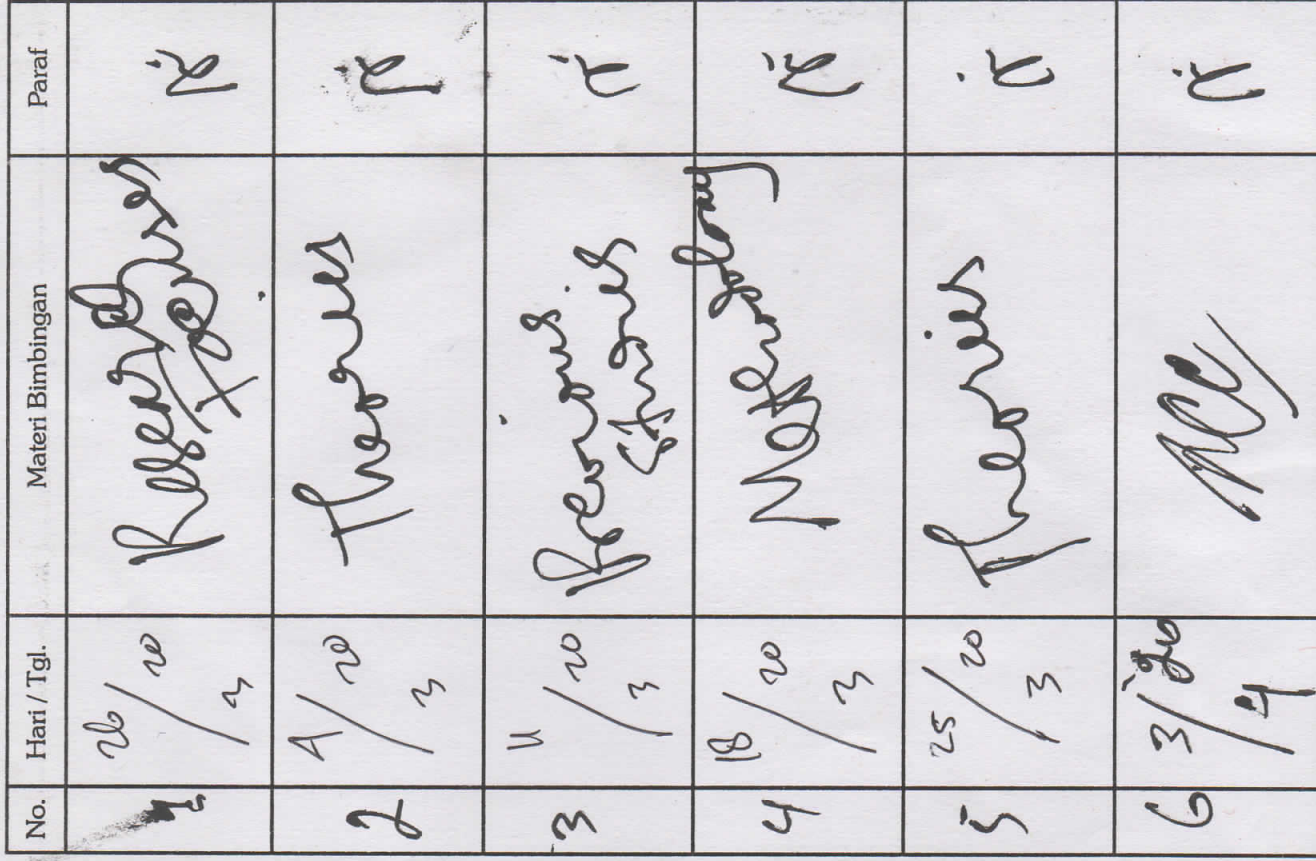 No. Hari / Tgl. Materi Bimbingan Paraf
1 26/20 Research
2
2 4/20 Theories
3
3 11/20 Previous
3 Studies
4 18/20 Methodology
3
5 25/20 Theories
3
6 3/20 ACC
4